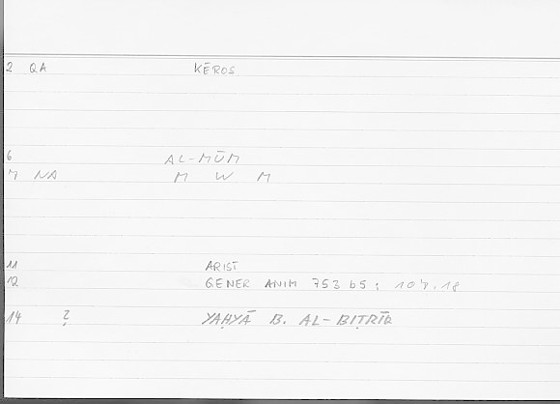 2 QA KĒROS
6 AL-MŪM
7 NA M W M
11 ARIST
12 GENER ANIM 753 b5 ; 107,18
14 ? YAḤYĀ B. AL-BIṬRĪQ